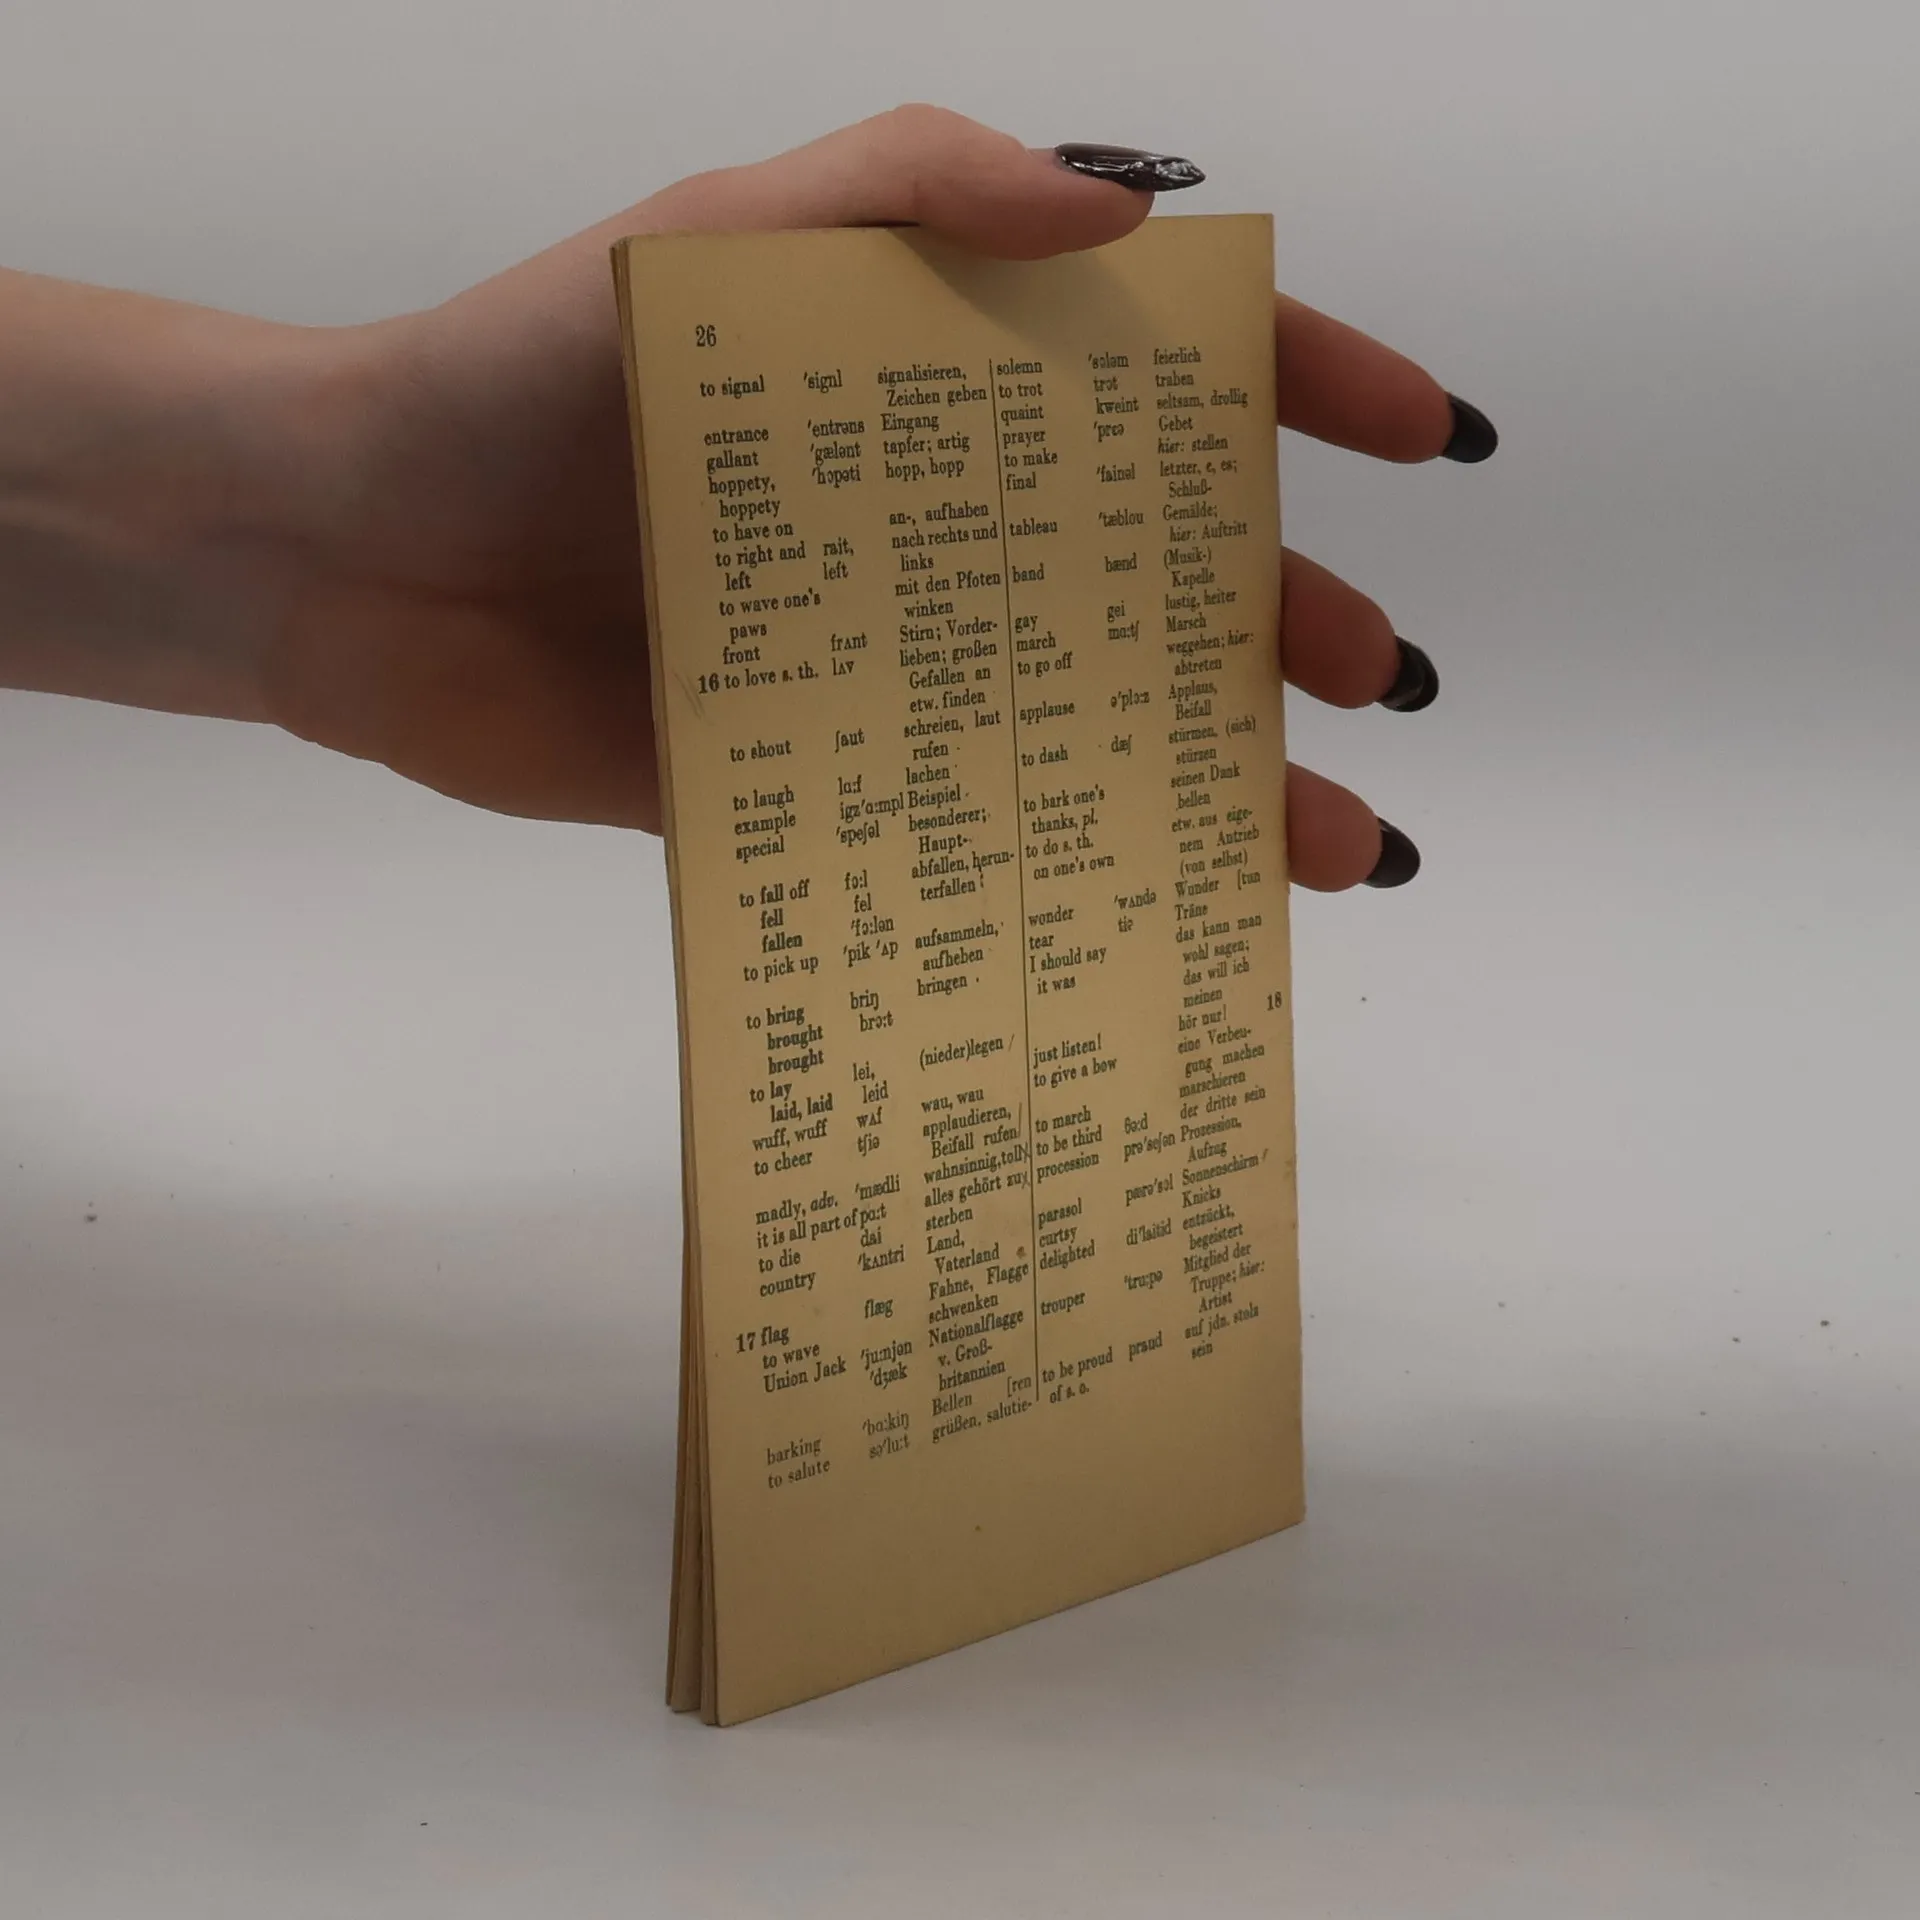 26
to signal 'signl signalisieren,
Zeichen geben
entrance 'entrəns Eingang
gallant 'gælənt tapfer; artig
hoppety, 'hɔpəti hopp, hopp
hoppety
to have on an-, aufhaben
to right and rait, nach rechts und
left left links
to wave one's mit den Pfoten
paws winken
front frʌnt Stirn; Vorder-
16 to love s. th. lʌv lieben; großen
Gefallen an
etw. finden
to shout ʃaut schreien, laut
rufen
to laugh lɑ:f lachen
example igz'ɑ:mpl Beispiel
special 'speʃəl besonderer;
Haupt-
to fall off fɔ:l abfallen, herun-
fell fel terfallen
fallen 'fɔ:lən
to pick up 'pik 'ʌp aufsammeln,
aufheben
to bring briŋ bringen
brought brɔ:t
brought
to lay lei, (nieder)legen
laid, laid leid
wuff, wuff wʌf wau, wau
to cheer tʃiə applaudieren,
Beifall rufen
madly, adv. 'mædli wahnsinnig, toll
it is all part of pɑ:t alles gehört zu
to die dai sterben
country 'kʌntri Land,
Vaterland
17 flag flæg Fahne, Flagge
to wave schwenken
Union Jack 'ju:njən Nationalflagge
'dʒæk v. Groß-
britannien
barking 'bɑ:kiŋ Bellen [ren
to salute sə'lu:t grüßen, salutie-
solemn 'sɔləm feierlich
to trot trɔt traben
quaint kweint seltsam, drollig
prayer 'prɛə Gebet
to make hier: stellen
final 'fainəl letzter, e, es;
Schluß-
tableau 'tæblou Gemälde;
hier: Auftritt
band bænd (Musik-)
Kapelle
gay gei lustig, heiter
march mɑ:tʃ Marsch
to go off weggehen; hier:
abtreten
applause ə'plɔ:z Applaus,
Beifall
to dash dæʃ stürmen, (sich)
stürzen
to bark one's seinen Dank
thanks, pl. bellen
to do s. th. etw. aus eige-
on one's own nem Antrieb
(von selbst)
wonder 'wʌndə Wunder [tun
tear tiə Träne
I should say das kann man
it was wohl sagen;
das will ich
meinen 18
just listen! hör nur!
to give a bow eine Verbeu-
gung machen
to march marschieren
to be third θə:d der dritte sein
procession prə'seʃən Prozession,
Aufzug
parasol pærə'sɔl Sonnenschirm
curtsy Knicks
delighted di'laitid entzückt,
begeistert
trouper 'tru:pə Mitglied der
Truppe; hier:
Artist
to be proud praud auf jdn. stolz
of s. o. sein